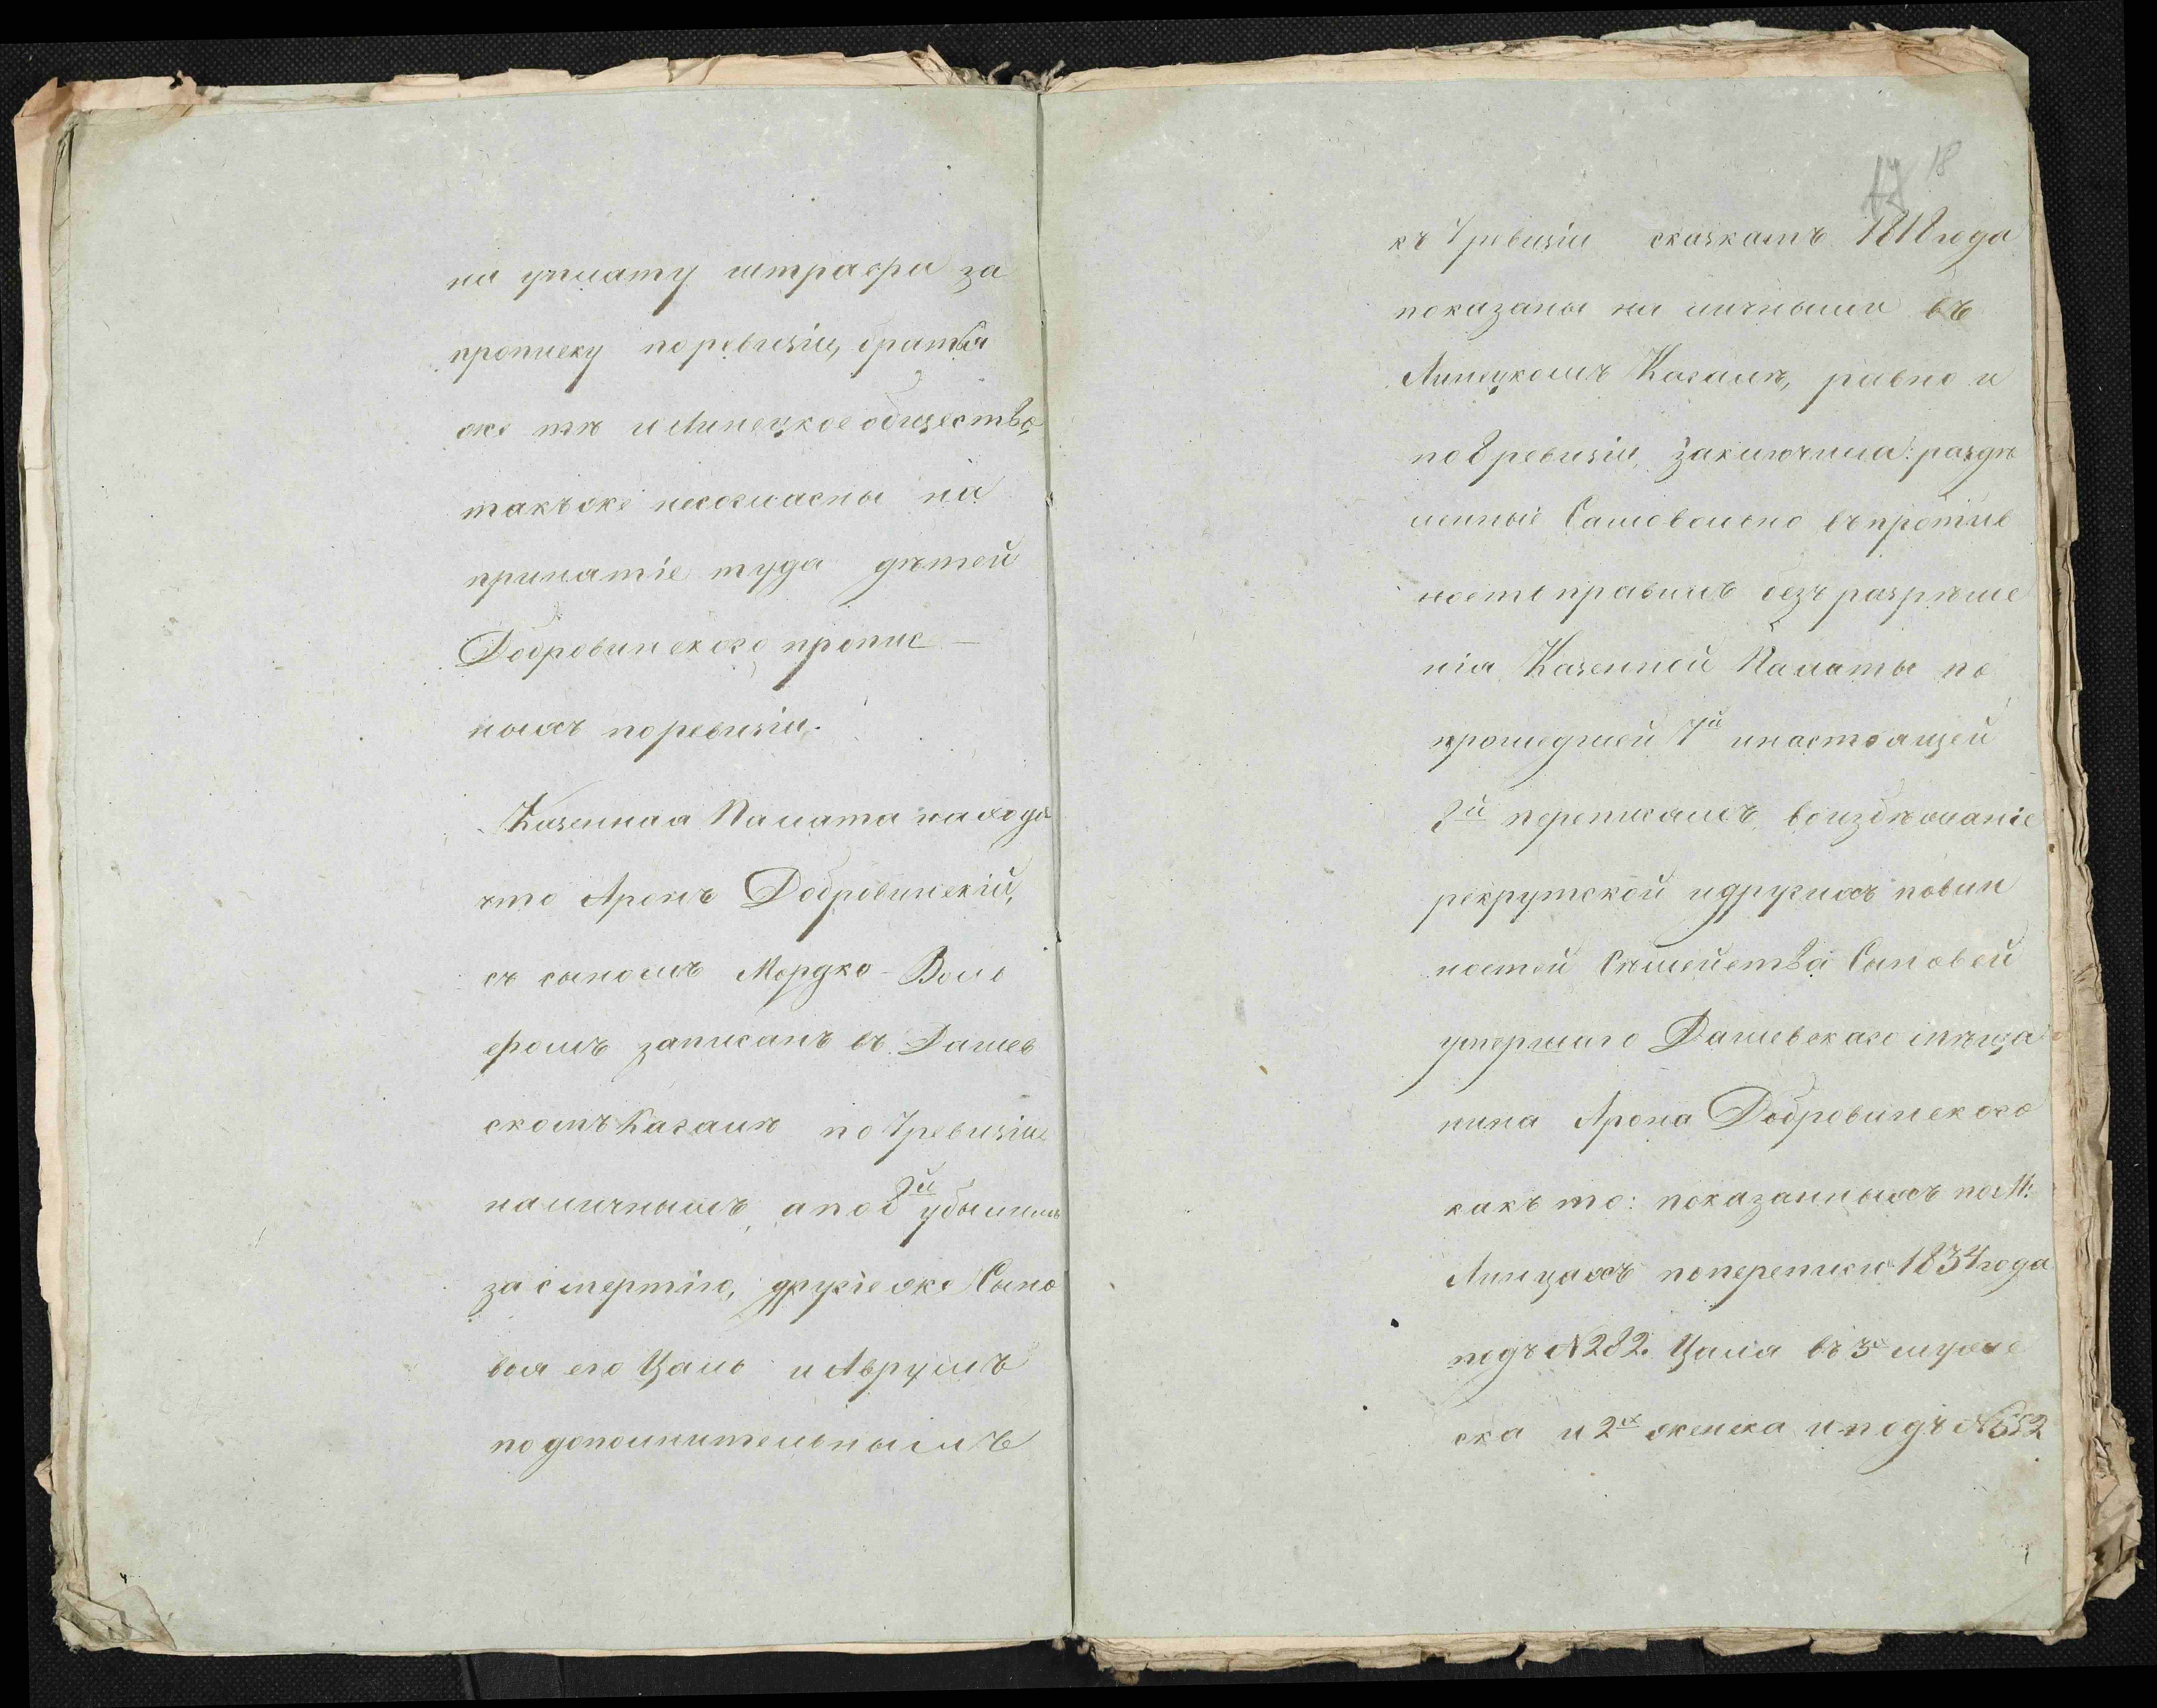 на уплату штрафа за
прописку по ревизіи, братья
же тѣ и Липецкое общество
такъ же несогласны на
принятіе туда дѣтей
Добровинского пропис-
ныхъ по ревизіи.
Казенная Палата находя
что Аронъ Добровинскій,
съ сыномъ Мордко-Воль
фомъ записанъ въ Дашев
скомъ Кагалѣ по 7 ревизіи
наличнымъ, а по 8й убылымъ
за смертію, другіе же Сыно
вья его Цаль и Аврумъ
по дополнительнымъ
17 18
къ 7 ревизіи сказкамъ 1818 года
показаны на личными въ
Липецкомъ Кагалѣ, равно и
по 8 ревизіи, заключила: раздѣ
ленные Самовольно въ против
ность правилъ безъ разрѣше
нія Казенной Палаты по
прошедшей 7й и настоящей
8й переписямъ, во избѣжаніе
рекрутской и другихъ повин
ностей Сѣмейства Сыновей
умершаго Дашевскаго мѣща
нина Арона Добровинского
какъ то: показанныхъ по М:
Липцахъ по переписи 1834 года
подъ N 282. Цаля въ 3х мужес
ка и 2х женска и подъ N 552